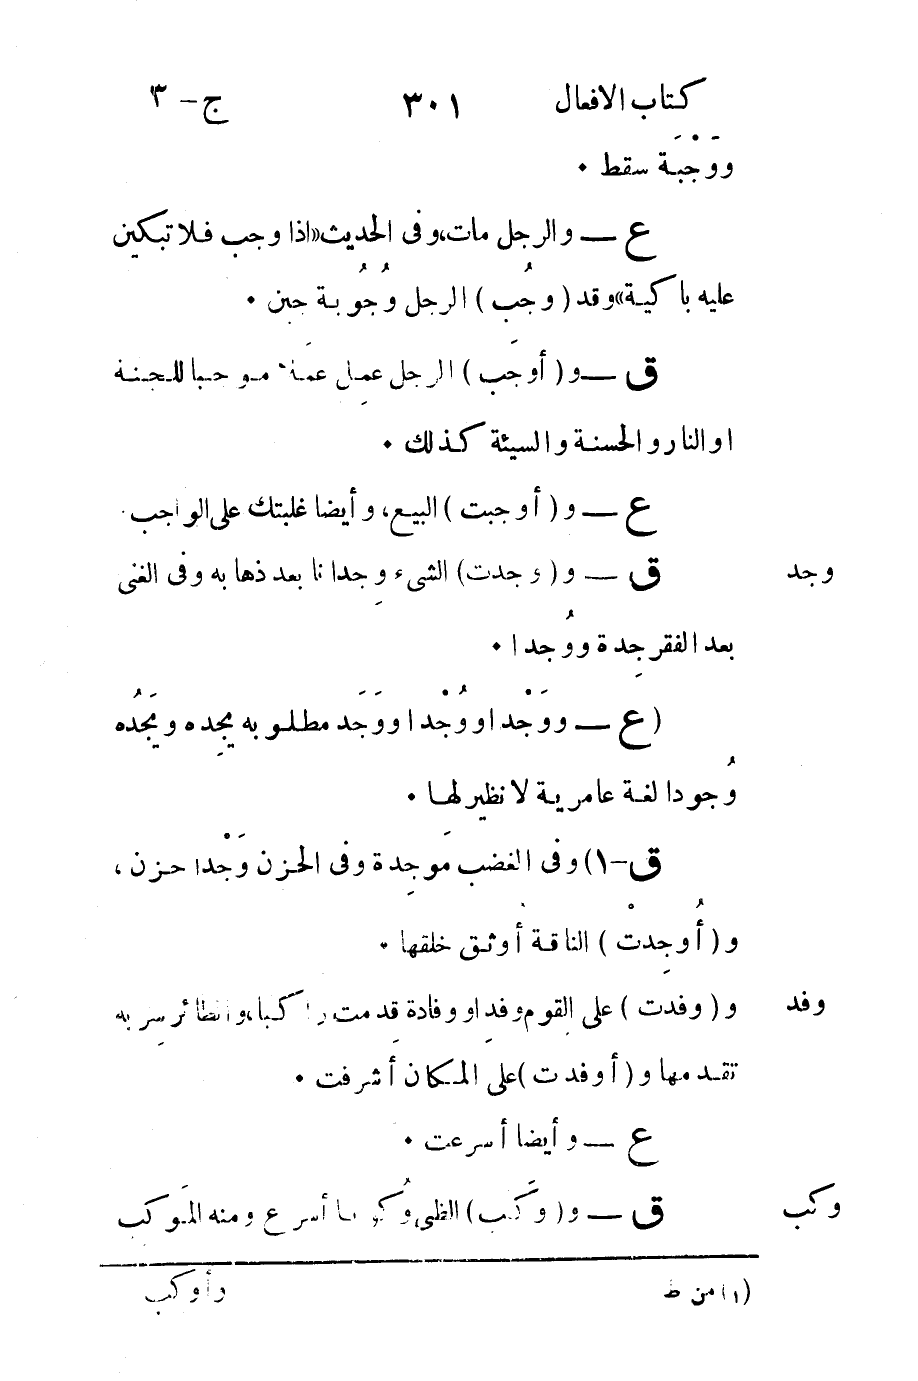 كتاب الافعال ٣٠١ ج – ٣
ووَجْبَة سقط ٠
ع — والرجل مات، وفى الحديث «اذا وجب فلا تبكين
عليه باكية» وقد (وجُب) الرجل وُجُوبة جبن ٠
ق — و (أوجَب) الرجل عمل عمَلا موجبا للجنة
او النار والحسنة والسيئة كذلك ٠
ع — و (أوجبت) البيع، وأيضا غلبتك على الواجب ٠
وجد ق — و (وجدت) الشىء وجِدانا بعد ذهابه وفى الغنى
بعد الفقر جِدة ووُجدا ٠
(ع — ووَجْدا ووُجْدا ووَجَد مطلوبه يجِده ويَجُده
وُجودا لغة عامرية لا نظير لها ٠
ق – ١) وفى الغضب مَوجِدة وفى الحزن وَجْدا حزن ،
و (أُوجِدتْ) الناقة أوثق خلقها ٠
وفد و (وفدت) على القوم وفدا ووِفادة قدِمت راكبا، والطائر سِربه
تقدمها و (أوفدت) على المكان أشرفت ٠
ع — وأيضا أسرعت ٠
وكب ق — و (وكَب) الظبى وُكوبا أسرع ومنه المَوكب
(١) من ط وأوكب